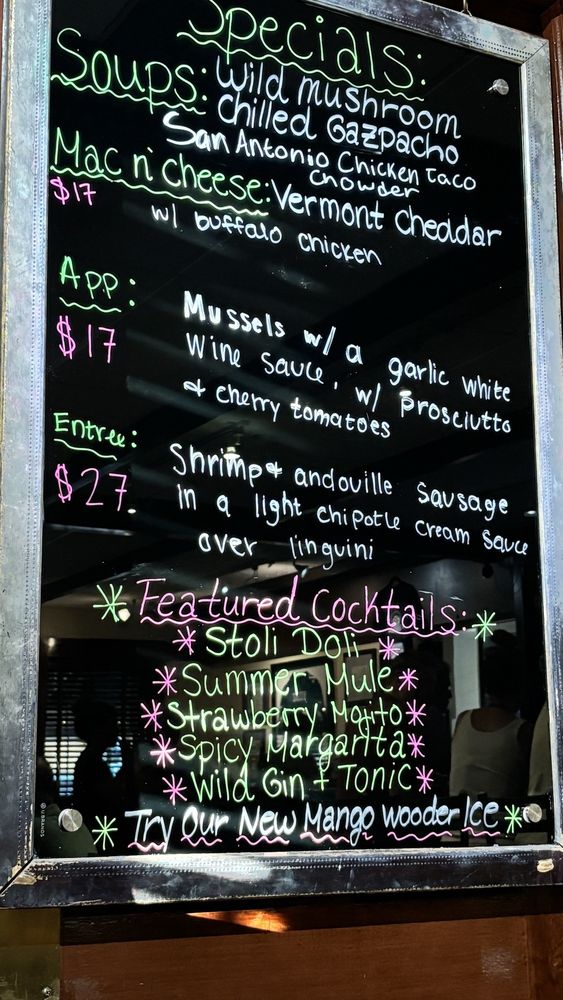 Specials:
Soups: Wild Mushroom
Chilled Gazpacho
San Antonio Chicken Taco
Chowder
Mac n' Cheese: Vermont Cheddar
$17
w/ buffalo chicken
App:
$17
Mussels w/ a garlic white
wine sauce, w/ prosciutto
& cherry tomatoes
Entree:
$27
Shrimp & andouille sausage
in a light chipotle cream sauce
over linguini
Featured Cocktails:
Stoli Doli
Summer Mule
Strawberry Mojito
Spicy Margarita
Wild Gin + Tonic
Try Our New Mango Wooder Ice